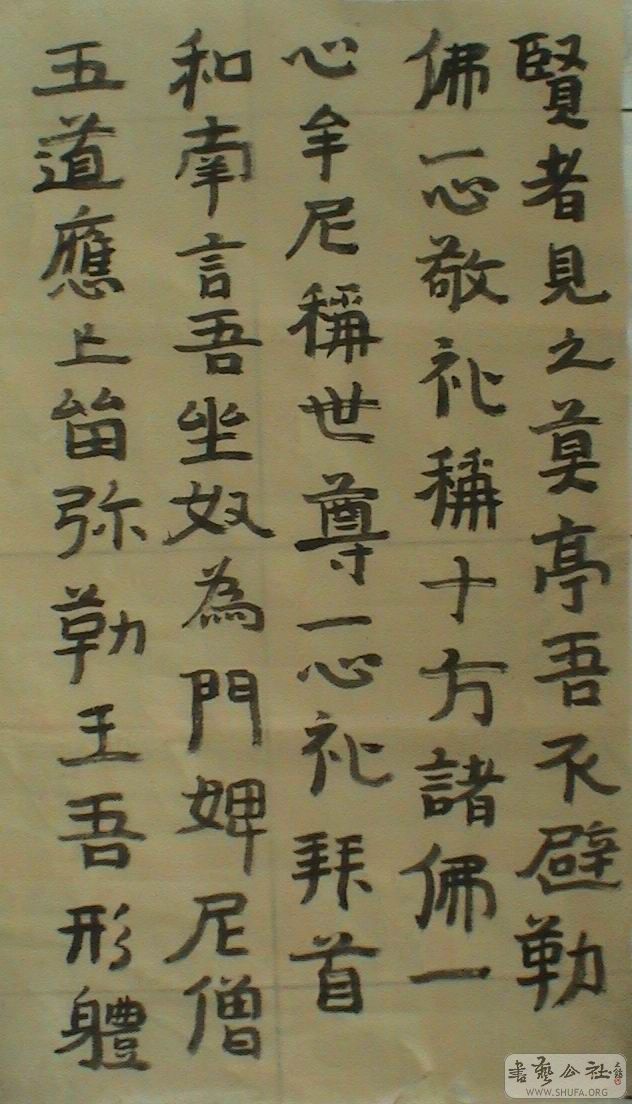 賢者見之莫亭吾不避勒
佛一心敬礼稱十方諸佛一
心牟尼稱世尊一心礼拜首
和南言吾坐奴為門婢尼僧
五道應上弥勒王吾形體
書藝公社
WWW.SHUFA.ORG